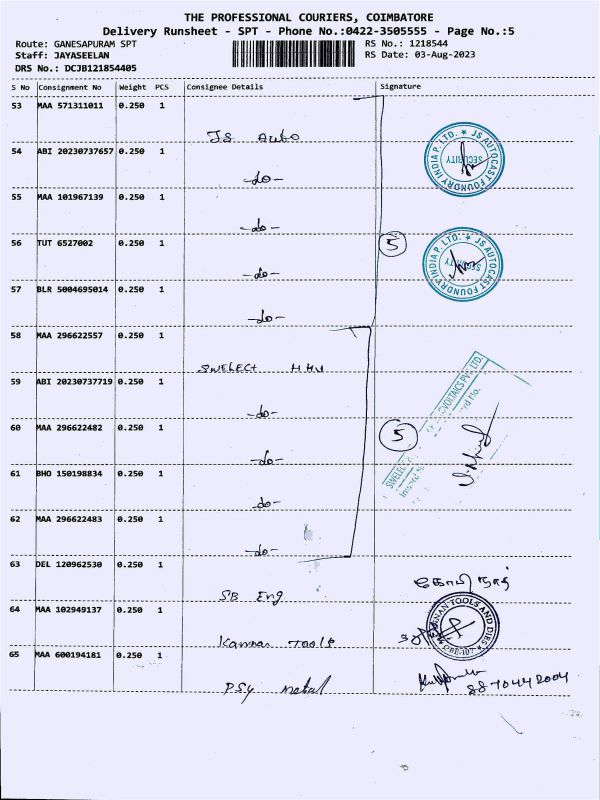 THE PROFESSIONAL COURIERS, COIMBATORE
Delivery Runsheet - SPT - Phone No.:0422-3505555 - Page No.:5
Route: GANESAPURAM SPT RS No.: 1218544
Staff: JAYASEELAN RS Date: 03-Aug-2023
DRS No.: DCJB121854405
S No Consignment No Weight PCS Consignee Details Signature
53 MAA 571311011 0.250 1
JS Auto
JS AUTOCAST FOUNDRY INDIA P. LTD.
SECURITY
54 ABI 20230737657 0.250 1
-do-
55 MAA 101967139 0.250 1
-do-
56 TUT 6527002 0.250 1 5
-do-
JS AUTOCAST FOUNDRY INDIA P. LTD.
SECURITY
57 BLR 5004695014 0.250 1
-do-
58 MAA 296622557 0.250 1
SWELECT HHV
59 ABI 20230737719 0.250 1
-do-
60 MAA 296622482 0.250 1 5
-do-
61 BHO 150198834 0.250 1
-do-
62 MAA 296622483 0.250 1
-do-
63 DEL 120962530 0.250 1
SB Eng
64 MAA 102949137 0.250 1
Kannan Tools
TOOLS AND DIES
CBE-107
65 MAA 600194181 0.250 1
PSY metal
8870442004